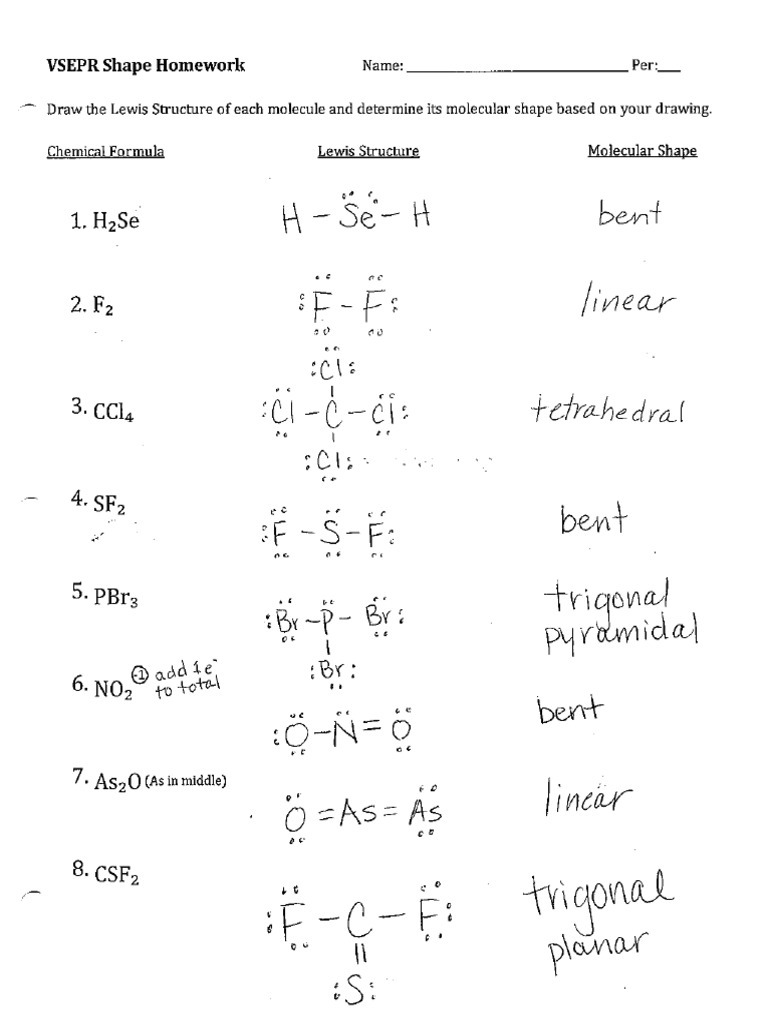 VSEPR Shape Homework Name: ______________________ Per:___
Draw the Lewis Structure of each molecule and determine its molecular shape based on your drawing.
Chemical Formula Lewis Structure Molecular Shape
1. H₂Se H – Se – H bent
2. F₂ F – F linear
Cl
3. CCl₄ Cl – C – Cl tetrahedral
Cl
4. SF₂ F – S – F bent
5. PBr₃ Br – P – Br trigonal
pyramidal
Br
6. NO₂ -1 add 1e⁻
to total
O – N = O bent
7. As₂O (As in middle) O = As = As linear
8. CSF₂ F – C – F trigonal
planar
S